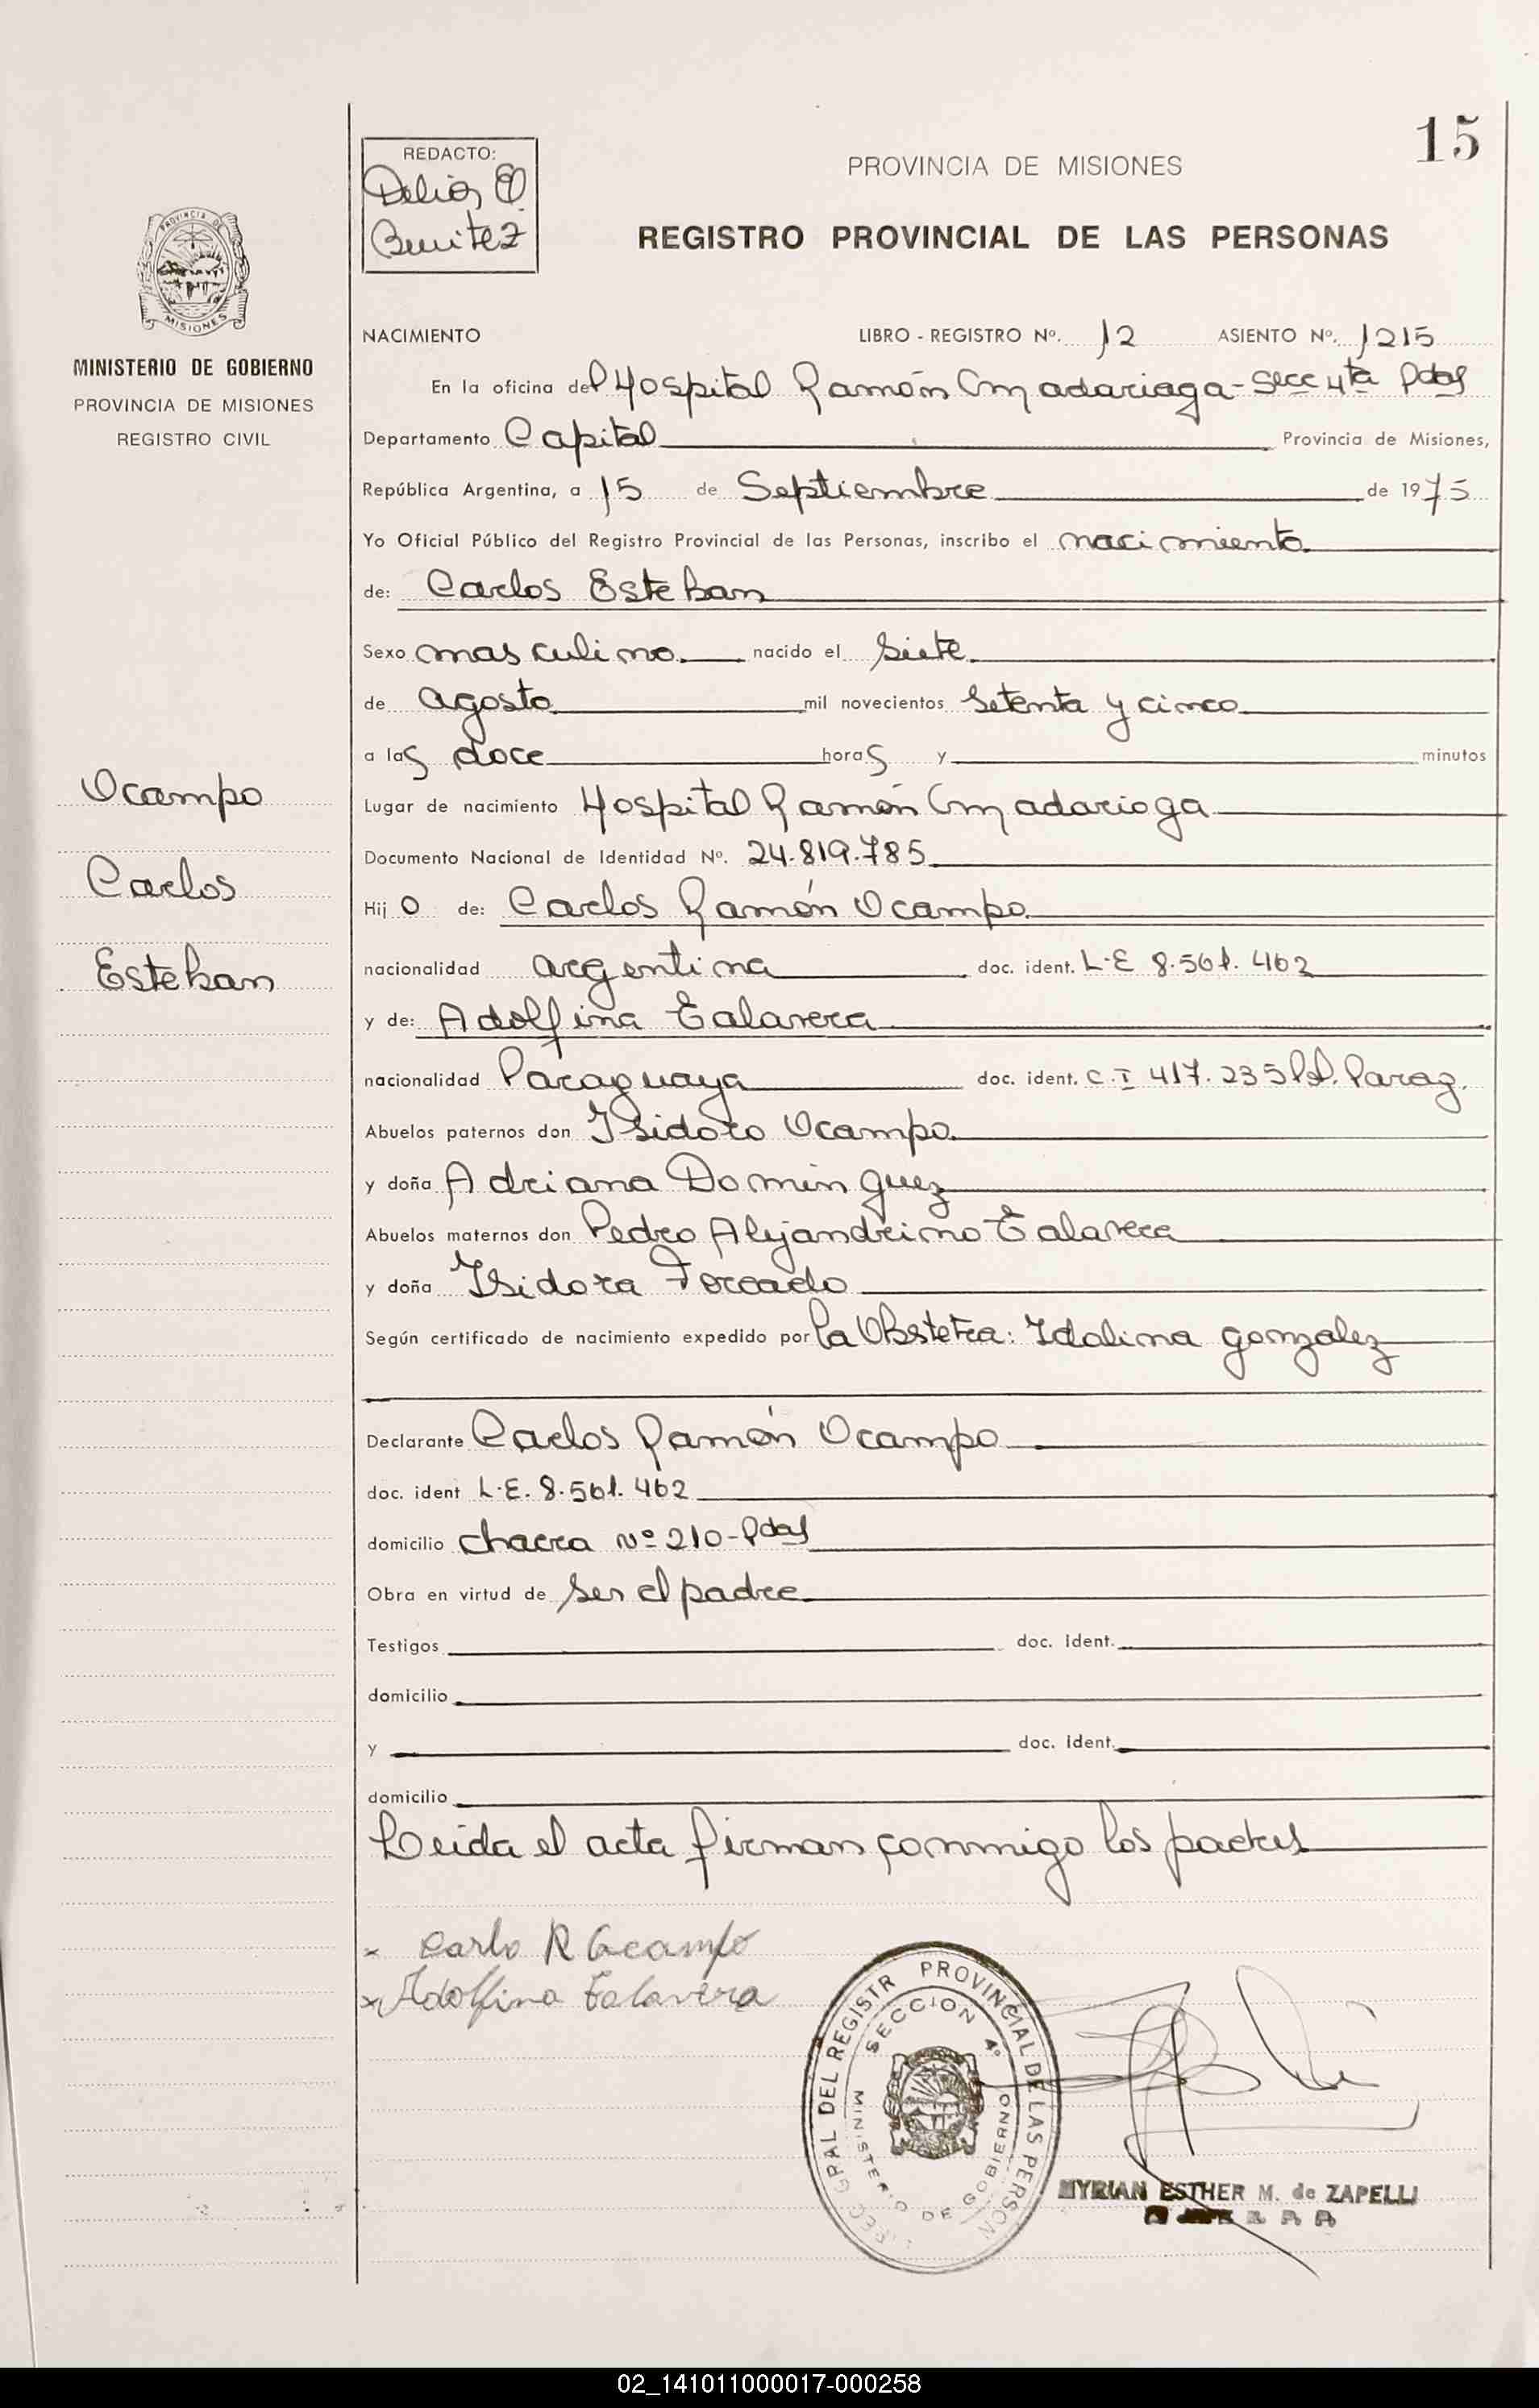 15
REDACTO:
Delia E.
Benitez
PROVINCIA DE MISIONES
REGISTRO PROVINCIAL DE LAS PERSONAS
PROVINCIA DE
MISIONES
MINISTERIO DE GOBIERNO
PROVINCIA DE MISIONES
REGISTRO CIVIL
Ocampo
Carlos
Esteban
NACIMIENTO LIBRO - REGISTRO Nº. 12 ASIENTO Nº. 1215
En la oficina del Hospital Ramón Madariaga - Secc 4ta Pdas
Departamento Capital Provincia de Misiones,
República Argentina, a 15 de Septiembre de 1975
Yo Oficial Público del Registro Provincial de las Personas, inscribo el nacimiento
de: Carlos Esteban
Sexo masculino. nacido el Siete
de agosto mil novecientos Setenta y cinco
a las doce horas y minutos
Lugar de nacimiento Hospital Ramón Madariaga
Documento Nacional de Identidad Nº. 24.819.785
Hijo de: Carlos Ramón Ocampo
nacionalidad argentina doc. ident. L.E 8.561.462
y de: Adolfina Talavera
nacionalidad Paraguaya doc. ident. C.I 417.235 Pol. Parag.
Abuelos paternos don Isidoro Ocampo.
y doña Adriana Dominguez
Abuelos maternos don Pedro Alejandrino Talavera
y doña Isidora Forcado
Según certificado de nacimiento expedido por la Obstetra: Idalina gonzalez
Declarante Carlos Ramón Ocampo
doc. ident L.E. 8.561.462
domicilio chacra Nº 210 - Pdas
Obra en virtud de ser el padre
Testigos doc. Ident.
domicilio
y doc. Ident.
domicilio
Leida el acta firman conmigo los padres
x Carlo R Ocampo
x Adolfina Talavera
DIREC GRAL DEL REGISTR PROVINCIAL DE LAS PERSON
SECCION 4º
MINISTERIO DE GOBIERNO
MYRIAN ESTHER M. de ZAPELLI
02_141011000017-000258